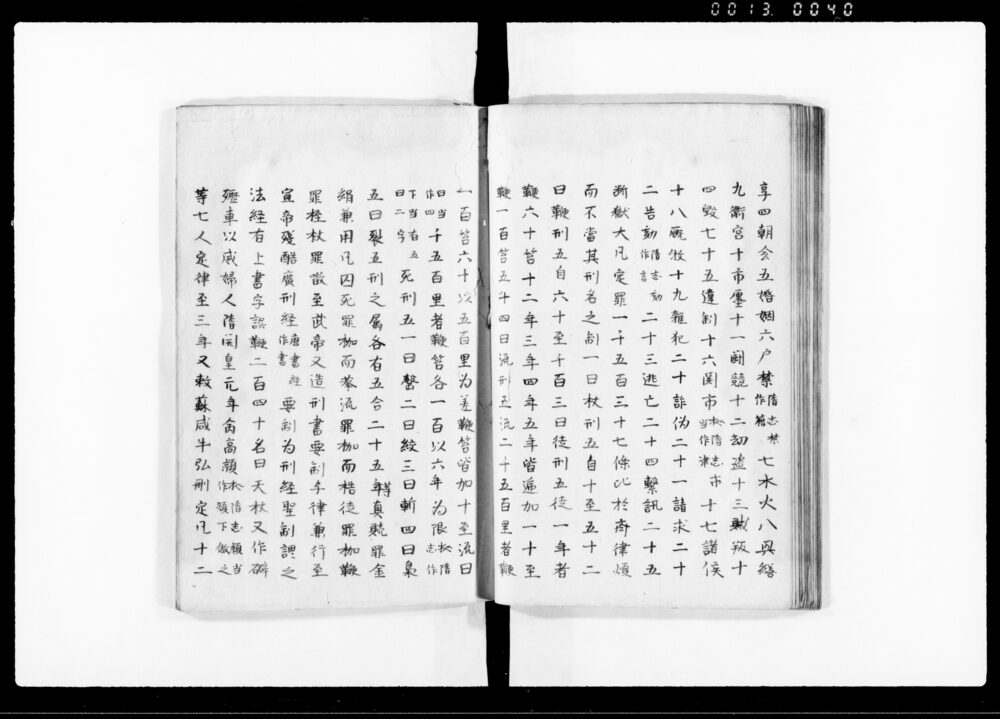 0013 0040
享四朝会五婚姻六户禁隋志禁作範七水火八興繕
九衛宮十市廛十一闘競十二刧盗十三賊叛十
四毀七十五違制十六関市按隋志市当作津十七諸侯
十八厩牧十九雑犯二十詐偽二十一請求二十
二告劾隋志劾作言二十三逃亡二十四繋訊二十五
断獄大凡定罪一千五百三十七條比於斉律煩
而不當其刑名之制一曰杖刑五自十至五十二
曰鞭刑五自六十至于百三曰徒刑五徒一年者
鞭六十笞十二年三年四年五年皆逓加一十至
鞭一百笞五十四曰流刑五流二千五百里者鞭
一百笞六十以五百里为差鞭笞皆加十至流曰
曰当作四千五百里者鞭笞各一百以六年为限按隋志作
下当有五曰二字死刑五一曰罄二曰絞三曰斬四曰梟
五曰裂五刑之属各有五合二十五年等真贖罪金
絹兼用凡囚死罪枷而拲流罪枷而梏徒罪枷鞭
罪桎杖罪散至武帝又造刑書要制与律兼行至
宣帝残酷廣刑経唐書経作書要制为刑経聖制謂之
法経有上書字誤鞭二百四十名曰天杖又作礔
礰車以威婦人隋開皇元年命高頬按隋志頬当作熲下倣之
等七人定律至三年又敕蘇威牛弘刪定凡十二